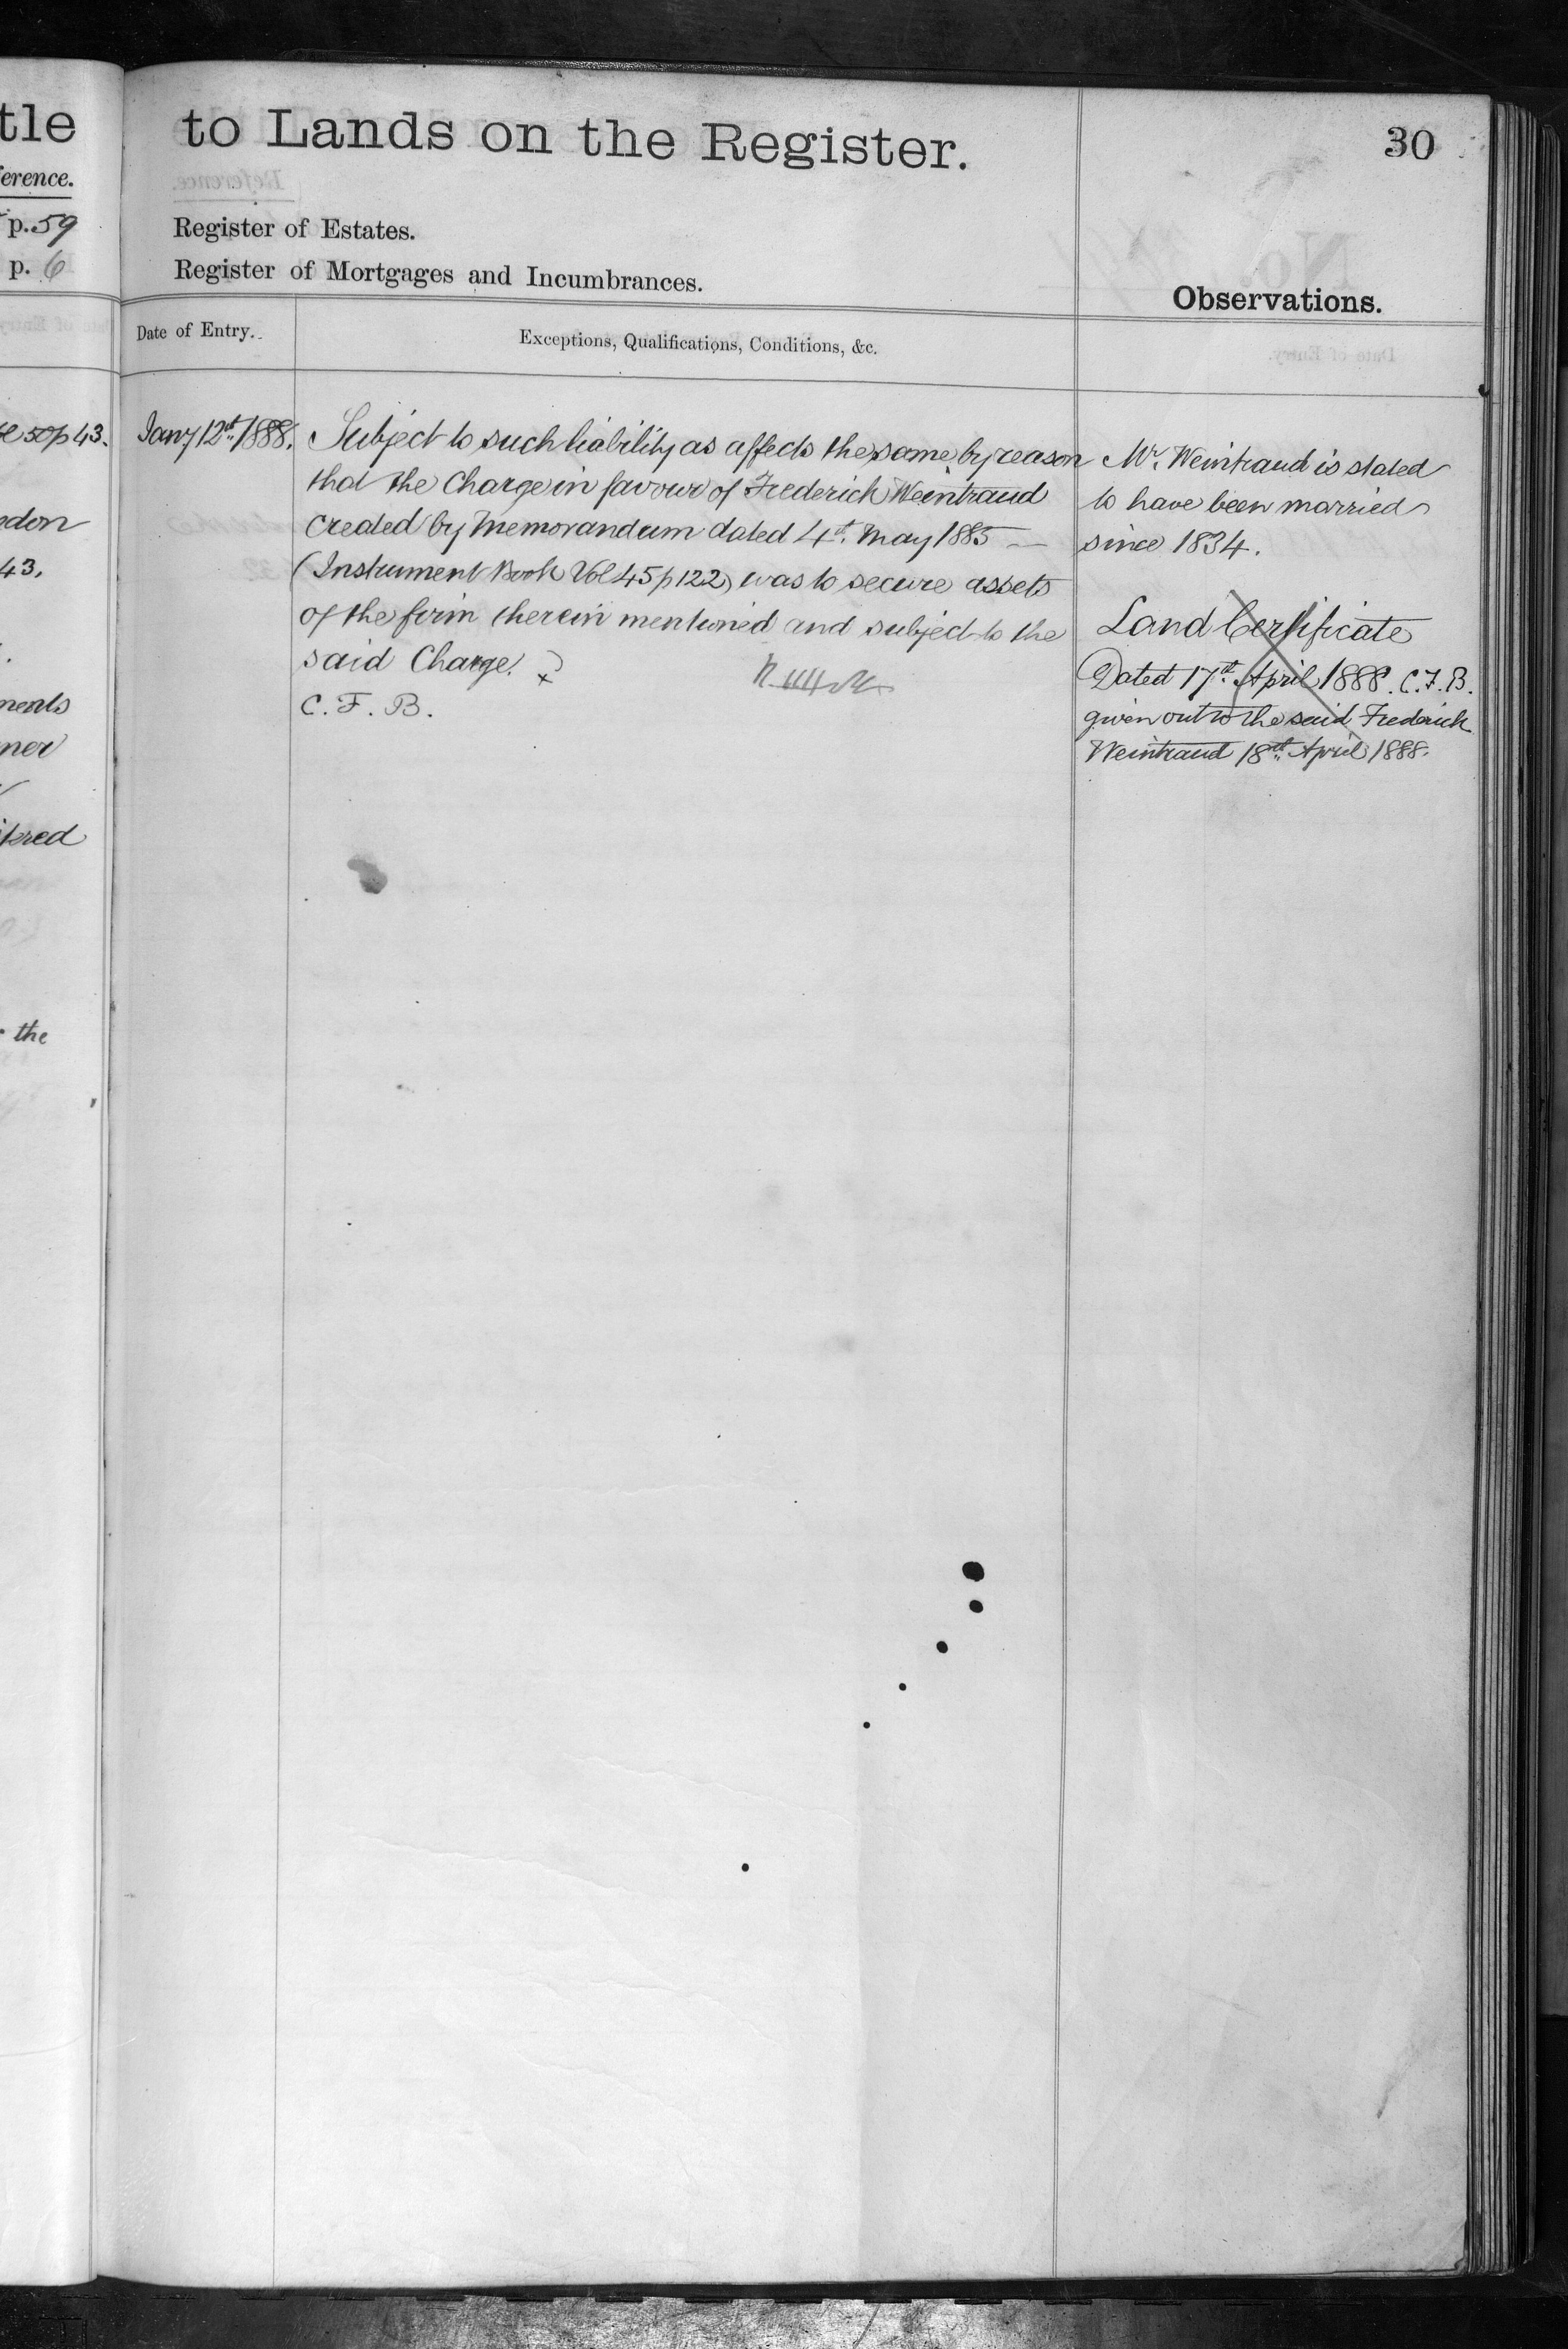 tle
erence.
p. 59
p. 6
50 p 43.
don
43.
ments
ner
the
to Lands on the Register.
30
Register of Estates.
Register of Mortgages and Incumbrances.
Observations.
Date of Entry.
Exceptions, Qualifications, Conditions, &c.
Jany 12th 1888.
Subject to such liability as affects the same by reason
that the Charge in favour of Frederick Weintraud
created by Memorandum dated 4th May 1885 —
(Instrument Book Vol 45 p 122) was to secure assets
of the firm therein mentioned and subject to the
said Charge.
C. F. B.
Mr. Weintraud is stated
to have been married
since 1834.
Land Certificate
Dated 17th April 1888. C.F.B.
given out to the said Frederick
Weintraud 18th April 1888.